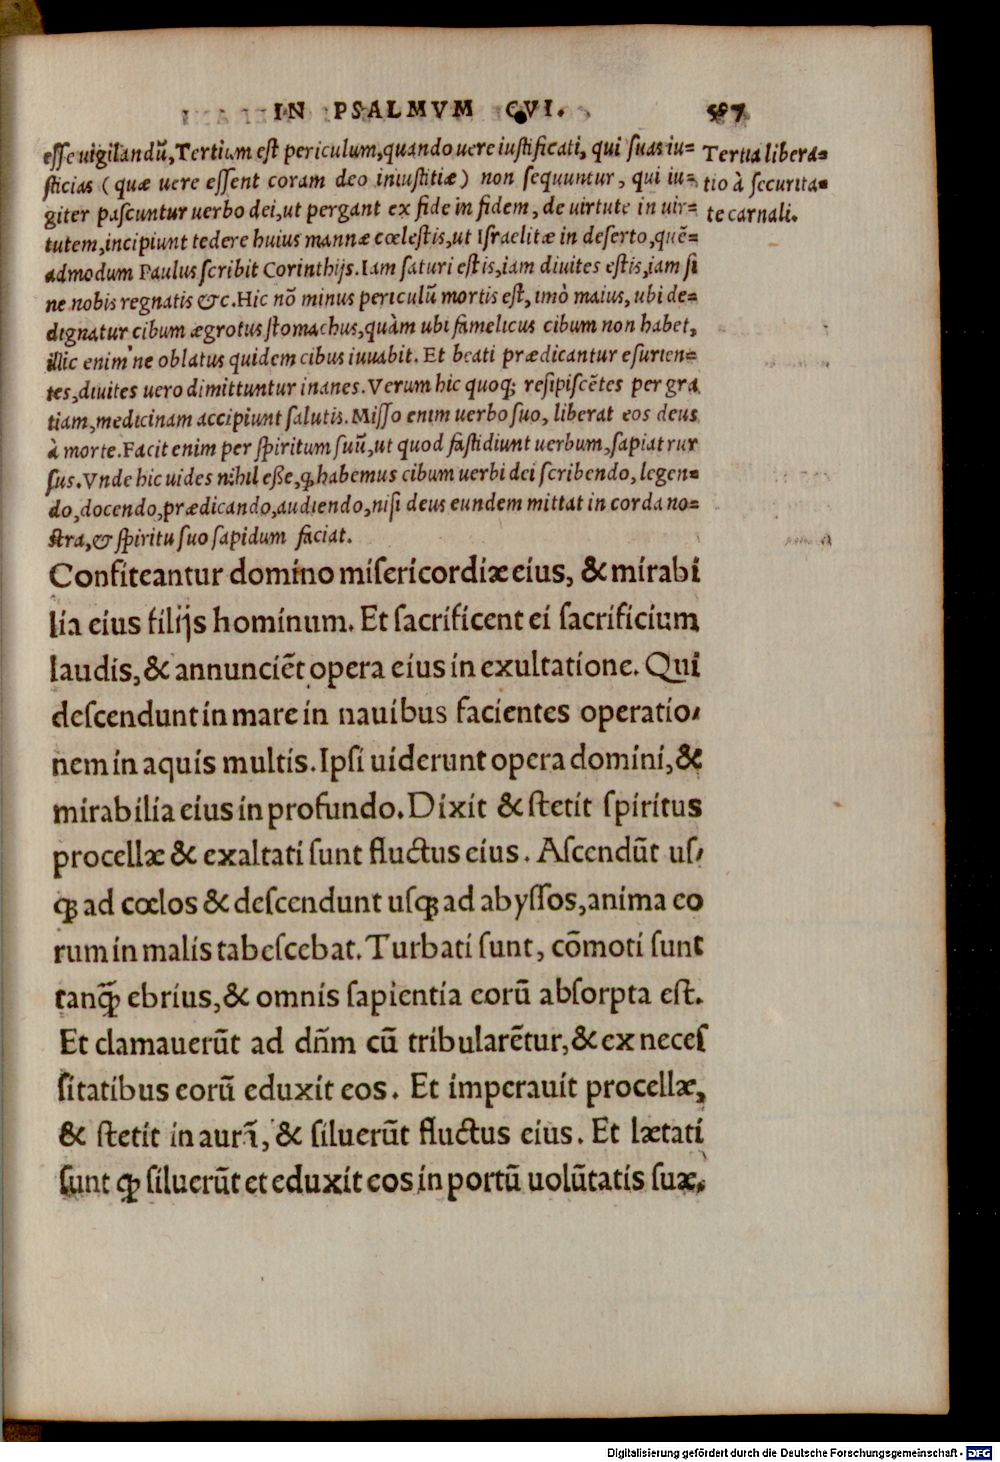 IN PSALMVM CVI. 587
esse uigilandũ, Tertium est periculum, quando uere iustificati, qui suas iu-
sticias (quæ uere essent coram deo iniustitiæ) non sequuntur, qui iu-
giter pascuntur uerbo dei, ut pergant ex fide in fidem, de uirtute in uir-
tutem, incipiunt tedere huius mannæ cœlestis, ut Israelitæ in deserto, quẽ-
admodum Paulus scribit Corinthijs. Iam saturi estis, iam diuites estis, iam si
ne nobis regnatis &c. Hic nõ minus periculũ mortis est, imò maius, ubi de-
dignatur cibum ægrotus stomachus, quàm ubi famelicus cibum non habet,
illic enim ne oblatus quidem cibus iuuabit. Et beati prædicantur esurien-
tes, diuites uero dimittuntur inanes. Verum hic quoq; resipiscẽtes per gra
tiam, medicinam accipiunt salutis. Misso enim uerbo suo, liberat eos deus
à morte. Facit enim per spiritum suũ, ut quod fastidiunt uerbum, sapiat rur
sus. Vnde hic uides nihil eße, ꝙ habemus cibum uerbi dei scribendo, legen-
do, docendo, prædicando, audiendo, nisi deus eundem mittat in corda no-
stra, & spiritu suo sapidum faciat.
Tertia libera-
tio à securita-
te carnali.
Confiteantur domino misericordiæ eius, & mirabi
lia eius filijs hominum. Et sacrificent ei sacrificium
laudis, & annunciẽt opera eius in exultatione. Qui
descendunt in mare in nauibus facientes operatio-
nem in aquis multis. Ipsi uiderunt opera domini, &
mirabilia eius in profundo. Dixit & stetit spiritus
procellæ & exaltati sunt fluctus eius. Ascendũt us-
ꝙ ad cœlos & descendunt usꝙ ad abyssos, anima eo
rum in malis tabescebat. Turbati sunt, cõmoti sunt
tanꝙ̃ ebrius, & omnis sapientia eorũ absorpta est.
Et clamauerũt ad dñm cũ tribularẽtur, & ex neces
sitatibus eorũ eduxit eos. Et imperauit procellæ,
& stetit in aurã, & siluerũt fluctus eius. Et lætati
sunt ꝙ siluerũt et eduxit eos in portũ uolũtatis suæ.
Digitalisierung gefördert durch die Deutsche Forschungsgemeinschaft - DFG